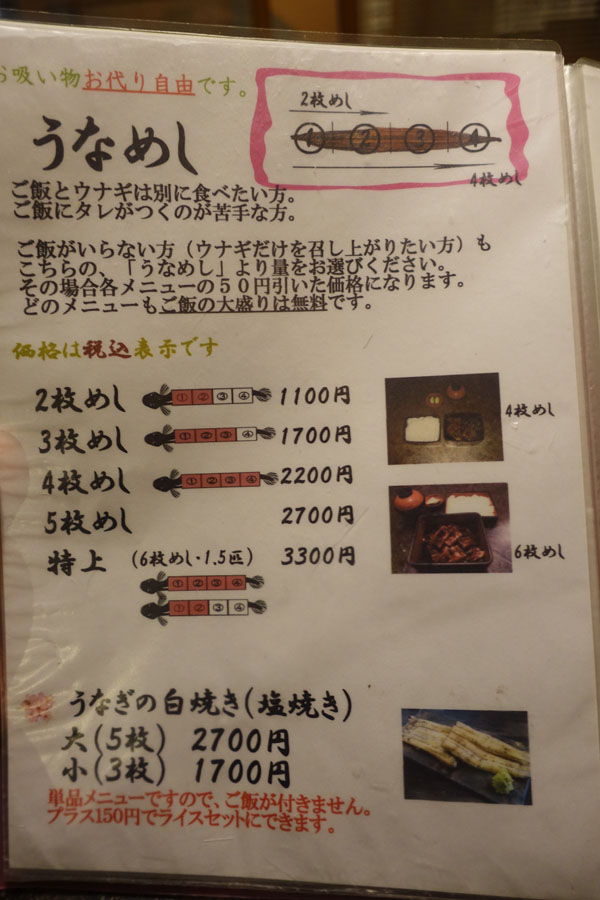 お吸い物お代り自由です。
2枚めし
① ② ③ ④
4枚めし
うなめし
ご飯とウナギは別に食べたい方。
ご飯にタレがつくのが苦手な方。
ご飯がいらない方（ウナギだけを召し上がりたい方）も
こちらの、「うなめし」より量をお選びください。
その場合各メニューの５０円引いた価格になります。
どのメニューもご飯の大盛りは無料です。
価格は税込表示です
2枚めし ① ② ③ ④ 1100円
3枚めし ① ② ③ ④ 1700円
4枚めし ① ② ③ ④ 2200円
5枚めし 2700円
特上 (6枚めし・1.5匹) 3300円
① ② ③ ④
① ② ③ ④
4枚めし
6枚めし
うなぎの白焼き(塩焼き)
大(5枚) 2700円
小(3枚) 1700円
単品メニューですので、ご飯が付きません。
プラス150円でライスセットにできます。